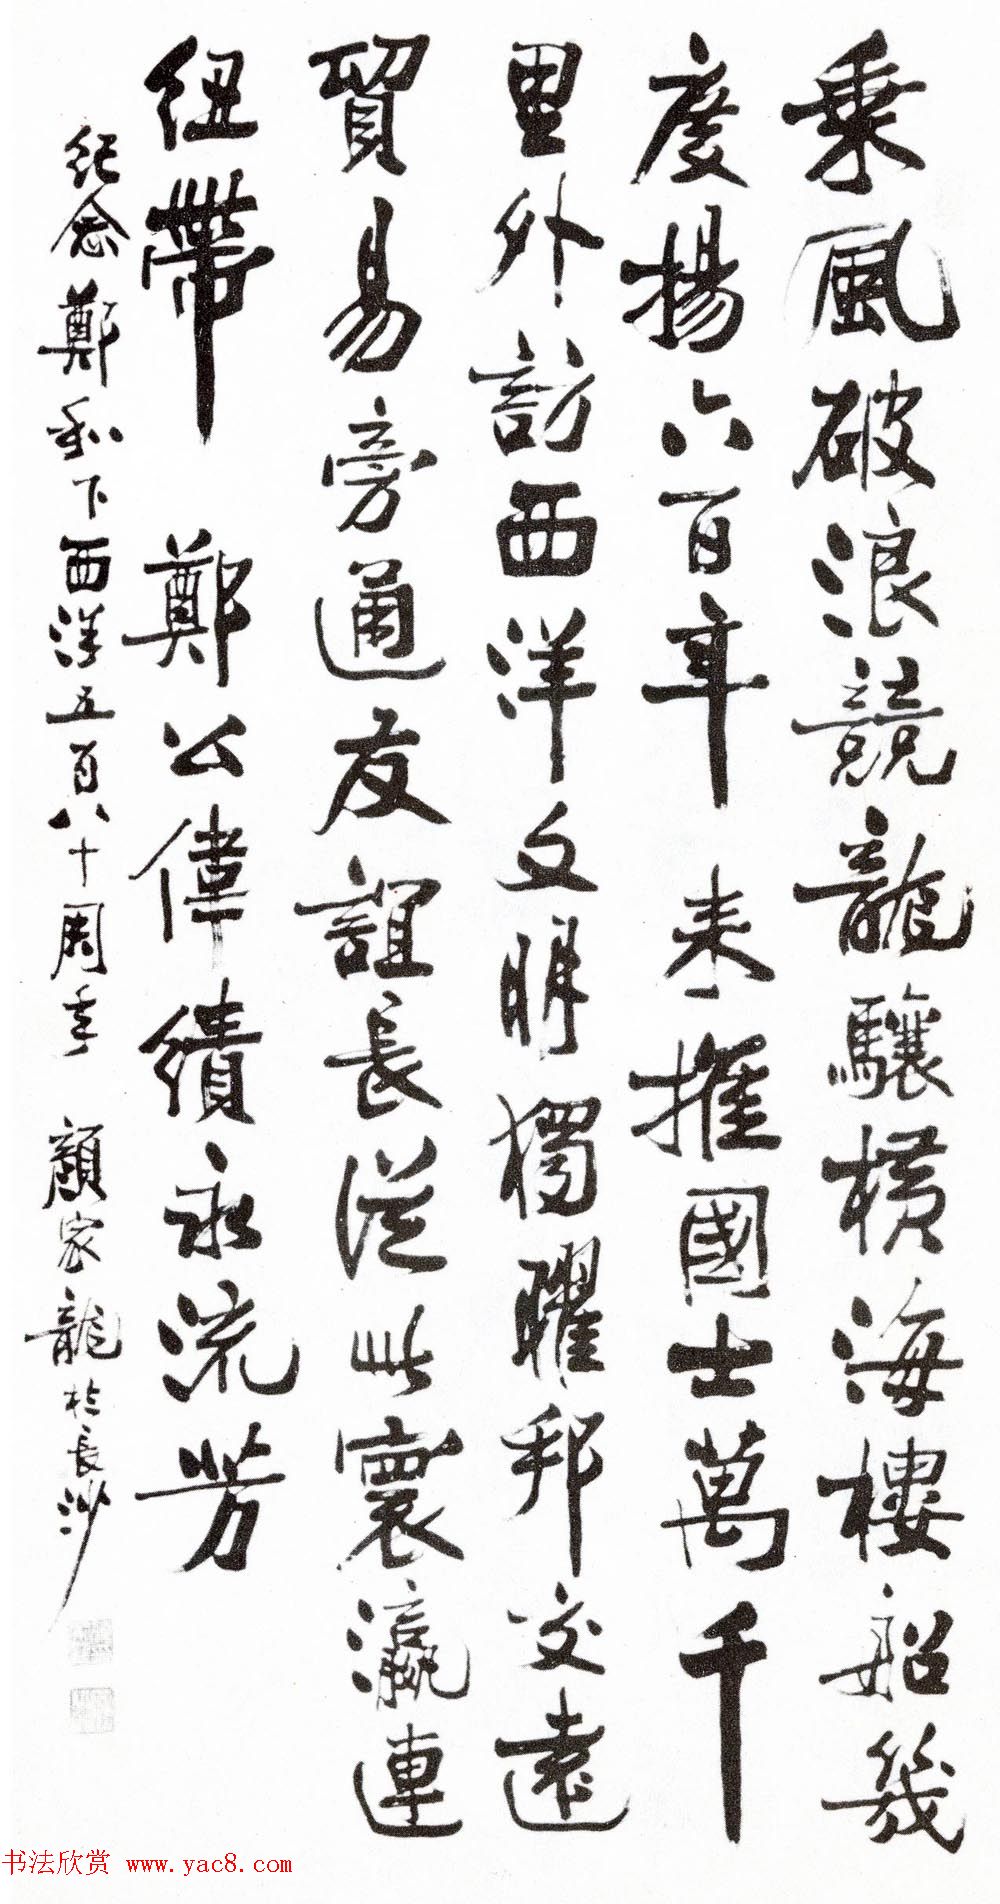 乘風破浪競龍驤橫海樓船幾
度揚六百年來推國士萬千
里外訪西洋文明獨耀邦交遠
貿易旁通友誼長從此寰瀛連
紐帶鄭公偉績永流芳
纪念鄭和下西洋五百八十周年 顏家龍於長沙
书法欣赏 www.yac8.com